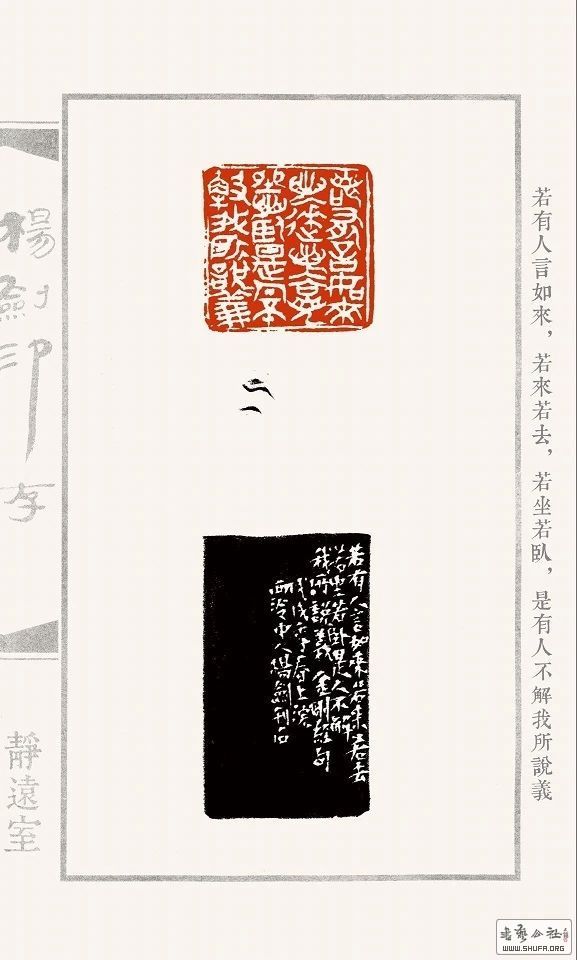 若有人言如來，若來若去，若坐若臥，是有人不解我所說義
若有人言如來若來若去
若坐若卧是人不解
我所說義金剛經句
西泠中人楊劍刊石
楊劍印存
靜遠室
书艺公社
WWW.SHUFA.ORG